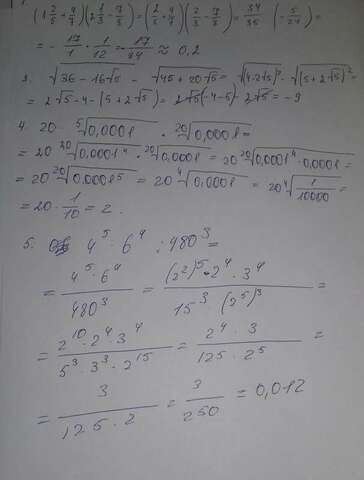 (1 2/5 + 4/7)(2 1/3 - 7/3) = (2/5 + 4/7)(2/3 - 7/3) = 34/35 · (- 5/24) =
= - 17/7 · 1/12 = - 17/84 ≈ 0,2
√(36 - 16√5) - √(45 + 20√5) = √(4 - 2√5)² - √(5 + 2√5)² =
= 2√5 - 4 - (5 + 2√5) = 2√5 - 4 - 5 - 2√5 = -9
4. 20 · ⁵√0,0001 · ²⁰√0,0001 =
= 20 ²⁰√0,0001⁴ · ²⁰√0,0001 = 20 ²⁰√0,0001⁴ · 0,0001 =
= 20 ²⁰√0,0001⁵ = 20 ⁴√0,0001 = 20 ⁴√(1/10000) =
= 20 · 1/10 = 2.
5. 4⁵ · 6⁴ : 480³ =
= (4⁵ · 6⁴)/480³ = ((2²)⁵ · 2⁴ · 3⁴)/(15³ · (2⁵)³) =
= (2¹⁰ · 2⁴ · 3⁴)/(5³ · 3³ · 2¹⁵) = (2⁴ · 3)/(125 · 2⁵) =
= 3/(125 · 2) = 3/250 = 0,012